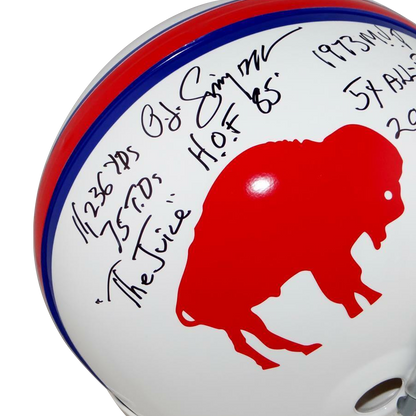 O.J. Simpson
H.O.F '85'
11,236 YDS
75 T.Ds
"The Juice"
1973 M.V.P
5X ALL-
20